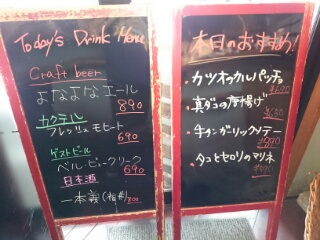 Today's Drink Menu
Craft beer
よなよなエール
890
カクテル
フレッシュモヒート
690
ゲストビール
ベル・ピュークリーク
690
日本酒
一本義
800
本日のおすすめ!
・カツオのカルパッチョ
¥690
・真ダコの唐揚げ
¥650
・牛タンガーリックソテー
¥990
・タコとセロリのマリネ
¥490